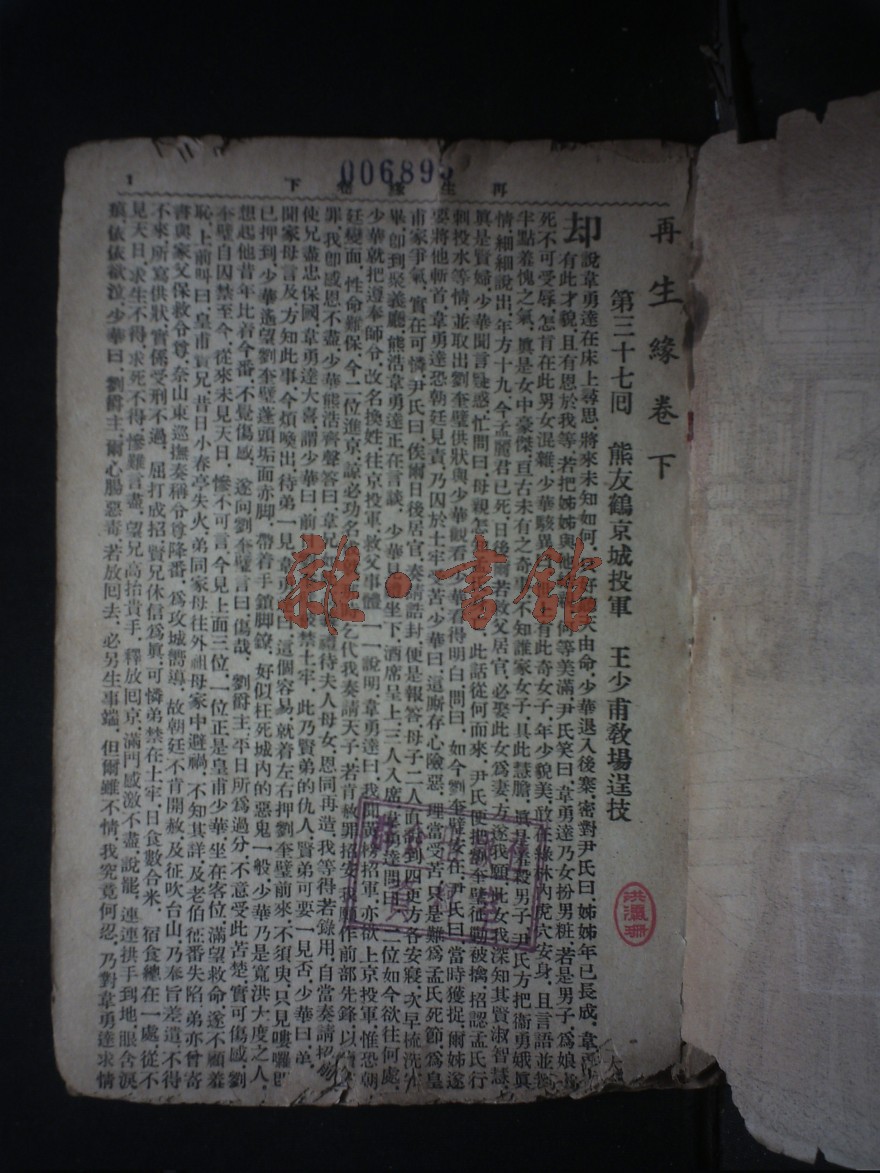 006895
再生緣卷下
1
再生緣卷下
第三十七回　熊友鶴京城投軍　王少甫教場逞技
却說韋勇達在床上尋思，將來未知如何，天由命，少華退入後寨，密對尹氏曰，姊姊年已長成，韋
有此才貌，且有恩於我等，若把姊姊與他，何等美滿，尹氏笑曰，韋勇達乃女扮男粧，若是男子，爲娘
死不可受辱，怎肯在此男女混雜，少華駭異，有此奇女子，年少貌美，敢在綠林內虎穴安身，且言語並無
半點羞愧之氣，眞是女中豪傑，亘古未有之奇事，不知誰家女子，具此慧膽，男子，尹氏方把衞勇娥眞
情，細細說出，年方十九，今孟麗君已死，日後爾若救父居官，必娶此女爲妻，方遂我願，此女我深知其賢淑智慧，
眞是賢婦，少華聞言疑惑，忙問曰，母親怎，此話從何而來，尹氏便把劉奎璧征勦被擒，招認孟氏行
刺投水等情，並取出劉奎璧供狀與少華觀看，少華看得明白，問曰，如今劉奎璧在，尹氏曰，當時獲捉，爾姊遂
要將他斬首，韋勇達恐朝廷見責，乃囚於土牢受苦，少華曰，這厮存心險惡，理當受苦，只是難爲孟氏死節，爲皇
甫家爭氣，實在可憐，尹氏曰，俟爾日後居官，奏請誥封，便是報答，母子二人直到四更方各安寢，次早梳洗
畢，卽到聚義廳，熊浩韋勇達正在言談，少華坐下，酒席呈上，三人入席，韋勇達問曰，二位如今欲往何處，
少華就把遵奉師令，改名換姓，往京投軍，救父事體，一一說明，韋勇達曰，我聞招軍，亦欲上京投軍，惟恐朝
廷變面，性命難保，今二位進京，諒必功名，乞代我奏請天子，若肯赦罪招安，我願作前部先鋒，以
罪，我卽感恩不盡，少華熊浩齊聲答曰，韋兄禮待夫人母女，恩同再造，我等得若錄用，自當奏請招
使兄盡忠保國，韋勇達大喜，謂少華曰，前禁土牢，此乃賢弟的仇人，賢弟可要一見否，少華曰，弟
聞家母言及，方知此事，今煩喚出，待弟一見，韋勇，這個容易，就着左右押劉奎璧前來，不須臾，只見嘍囉
已押到，少華遙望劉奎璧蓬頭垢面赤脚，帶着手鎖脚鐐，好似枉死城內的惡鬼一般，少華乃是寬洪大度之人，
想起他昔年比着今番，不覺傷感，遂向劉奎璧言曰，傷哉，劉爵主，平日所爲過分，不意受此苦楚，實可傷感，劉
奎璧自囚禁至今，從來未見天日，慘不可言，今見上面三位，一位正是皇甫少華，坐在客位，滿望救命，遂不顧羞
恥，上前叫曰，皇甫賢兄，昔日小春亭失火，弟同家母往外祖母家中避禍，不知其詳，及老伯征番失陷，弟亦曾寄
書與家父保救令尊，奈山東巡撫奏稱令尊降番，爲攻城嚮導，故朝廷不肯開赦，及征吹台山，乃奉旨差遣，不得
不來，所寫供狀，實係受刑不過，屈打成招，賢兄休信爲眞，可憐弟禁在土牢，日食數合米，宿食總在一處，從不
見天日，求生不得，求死不得，慘難言盡，望兄高抬貴手，釋放回京，滿門感激不盡，說罷，連連拱手到地，眼含淚
痕，依依欲泣，少華曰，劉爵主，爾心腸惡毒，若放回去，必另生事端，但爾雖不情，我究竟何忍，乃對韋勇達求情
雜·書館